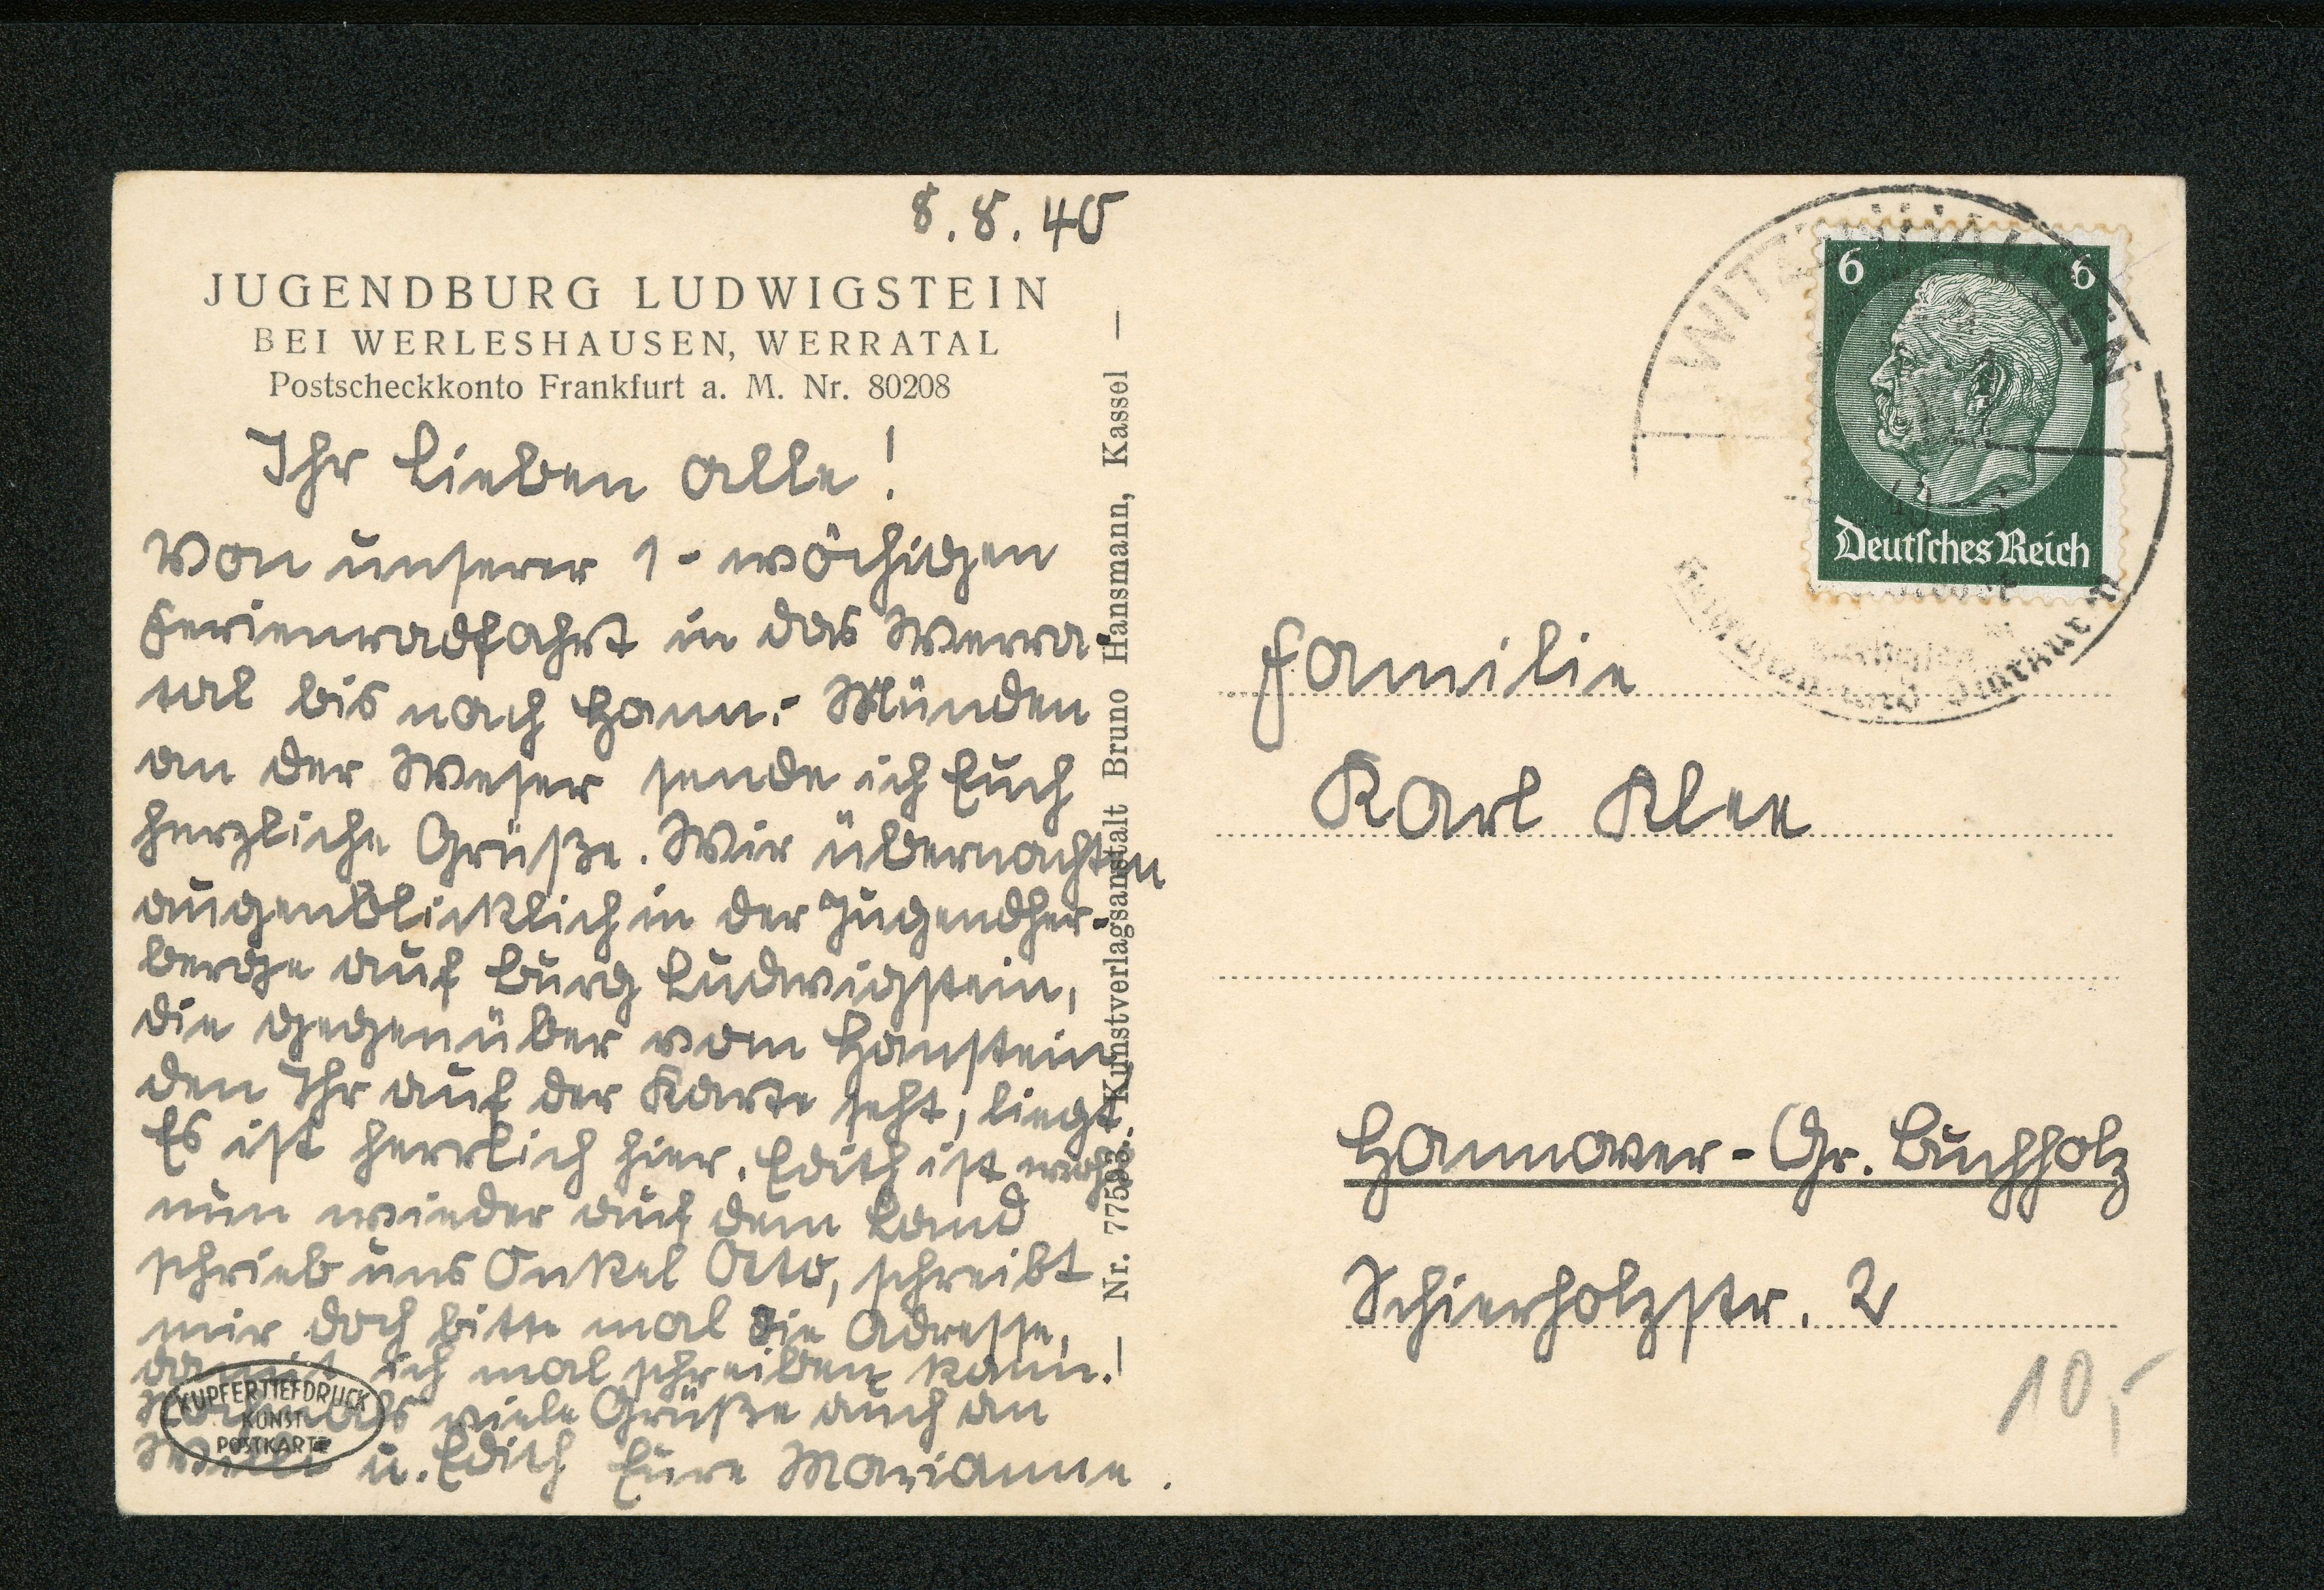 8.8.40
JUGENDBURG LUDWIGSTEIN
BEI WERLESHAUSEN, WERRATAL
Postscheckkonto Frankfurt a. M. Nr. 80208
Ihr Lieben alle!
Von unserer 1-wöchigen
Ferienradfahrt in das Werra-
tal bis nach Hann.-Münden
an der Weser sende ich Euch
herzliche Grüße. Wir übernachten
augenblicklich in der Jugendher-
berge auf Burg Ludwigstein,
die gegenüber vom Hanstein,
den Ihr auf der Karte seht, liegt.
Es ist herrlich hier. Edith ist wohl
nun wieder auf dem Land
schrieb uns Onkel Otto, schreibt
mir doch bitte mal die Adresse,
damit ich mal schreiben kann.
Nochmals viele Grüße auch an
Willi u. Edith Eure Marianne.
KUPFERTIEFDRUCK
KUNST
POSTKARTE
— Nr. 77593. Kunstverlagsanstalt Bruno Hansmann, Kassel —
WITZENHAUSEN
6 6
Deutsches Reich
Familie
Karl Klee
Hannover-Gr. Buchholz
Schierholzstr. 2
10,-